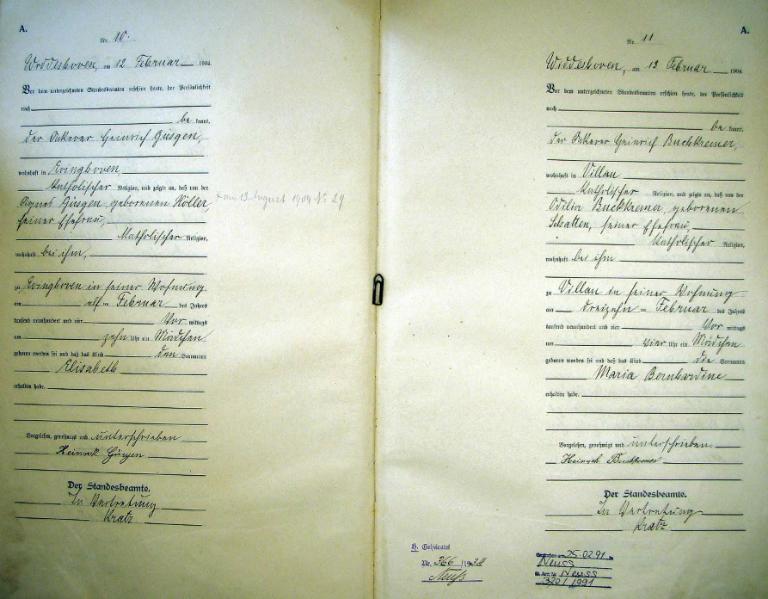 A.
Nr. 10.
am 12 Februar 1904
Vor dem unterzeichneten Standesbeamten erschien heute, der Persönlichkeit
nach
be kannt,
der Ackerer Heinrich Güsgen,
wohnhaft in Evinghoven
katholischer Religion, und zeigte an, daß von der
Agnes Güsgen geborenen Höller,
seiner Ehefrau,
katholischer Religion,
wohnhaft bei ihm,
zu Evinghoven in seiner Wohnung
am elf ten Februar des Jahres
tausend neunhundert und vier Vor mittags
um zehn Uhr ein Mädchen
geboren worden sei und daß das Kind den Vornamen
Elisabeth
erhalten habe.
Vorgelesen, genehmigt und unterschrieben
Heinrich Güsgen
Der Standesbeamte.
In Vertretung
Kratz
am 13 August 1904 Nr 29
A.
Nr. 11
am 13 Februar 1904
Vor dem unterzeichneten Standesbeamten erschien heute, der Persönlichkeit
nach
be kannt,
der Ackerer Heinrich Buchkremer,
wohnhaft in Villau
katholischer Religion, und zeigte an, daß von der
Odilia Buchkremer, geborenen
seiner Ehefrau,
katholischer Religion,
wohnhaft bei ihm
zu Villau in seiner Wohnung
am dreizehn ten Februar des Jahres
tausend neunhundert und vier Vor mittags
um vier Uhr ein Mädchen
geboren worden sei und daß das Kind die Vornamen
Maria Bernhardine
erhalten habe.
Vorgelesen, genehmigt und unterschrieben
Heinrich Buchkremer
Der Standesbeamte.
In Vertretung
Kratz
Nr. 266
25.02.91
Neuss
Neuss
1991